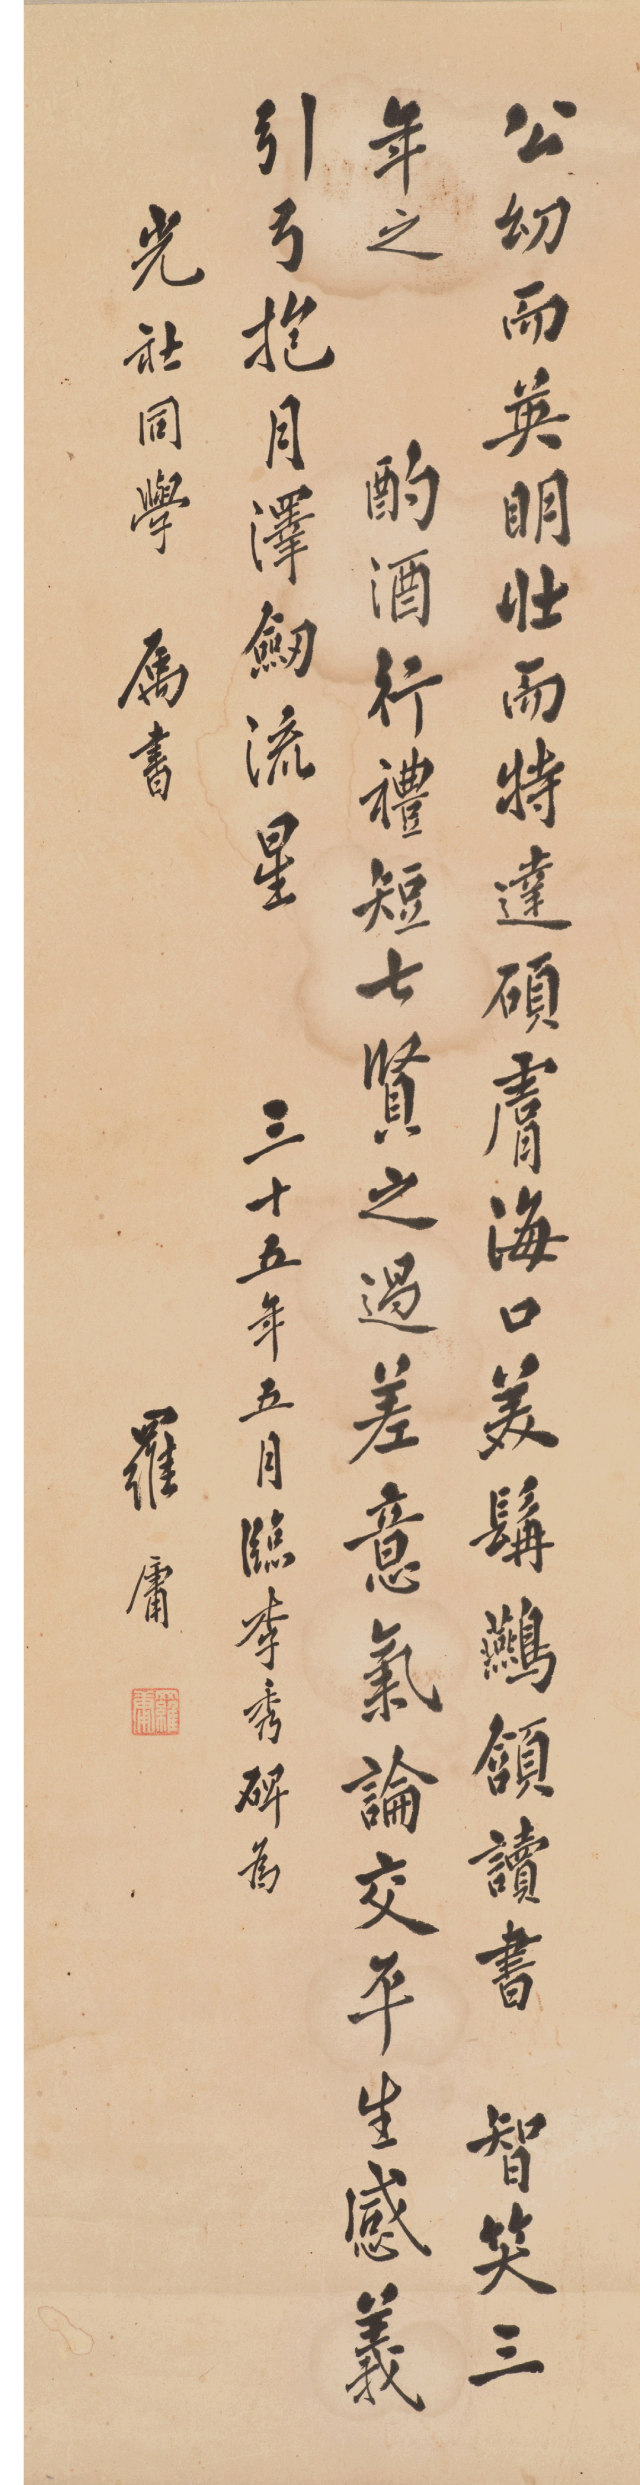 公幼而英明壯而特達碩膚海口美鬚鷰頷讀書 智笑三
年之 酌酒行禮短七賢之過差意氣論交平生感義
引弓抱月澤劔流星 三十五年五月臨李秀碑為
光社同學 屬書 羅庸
羅庸